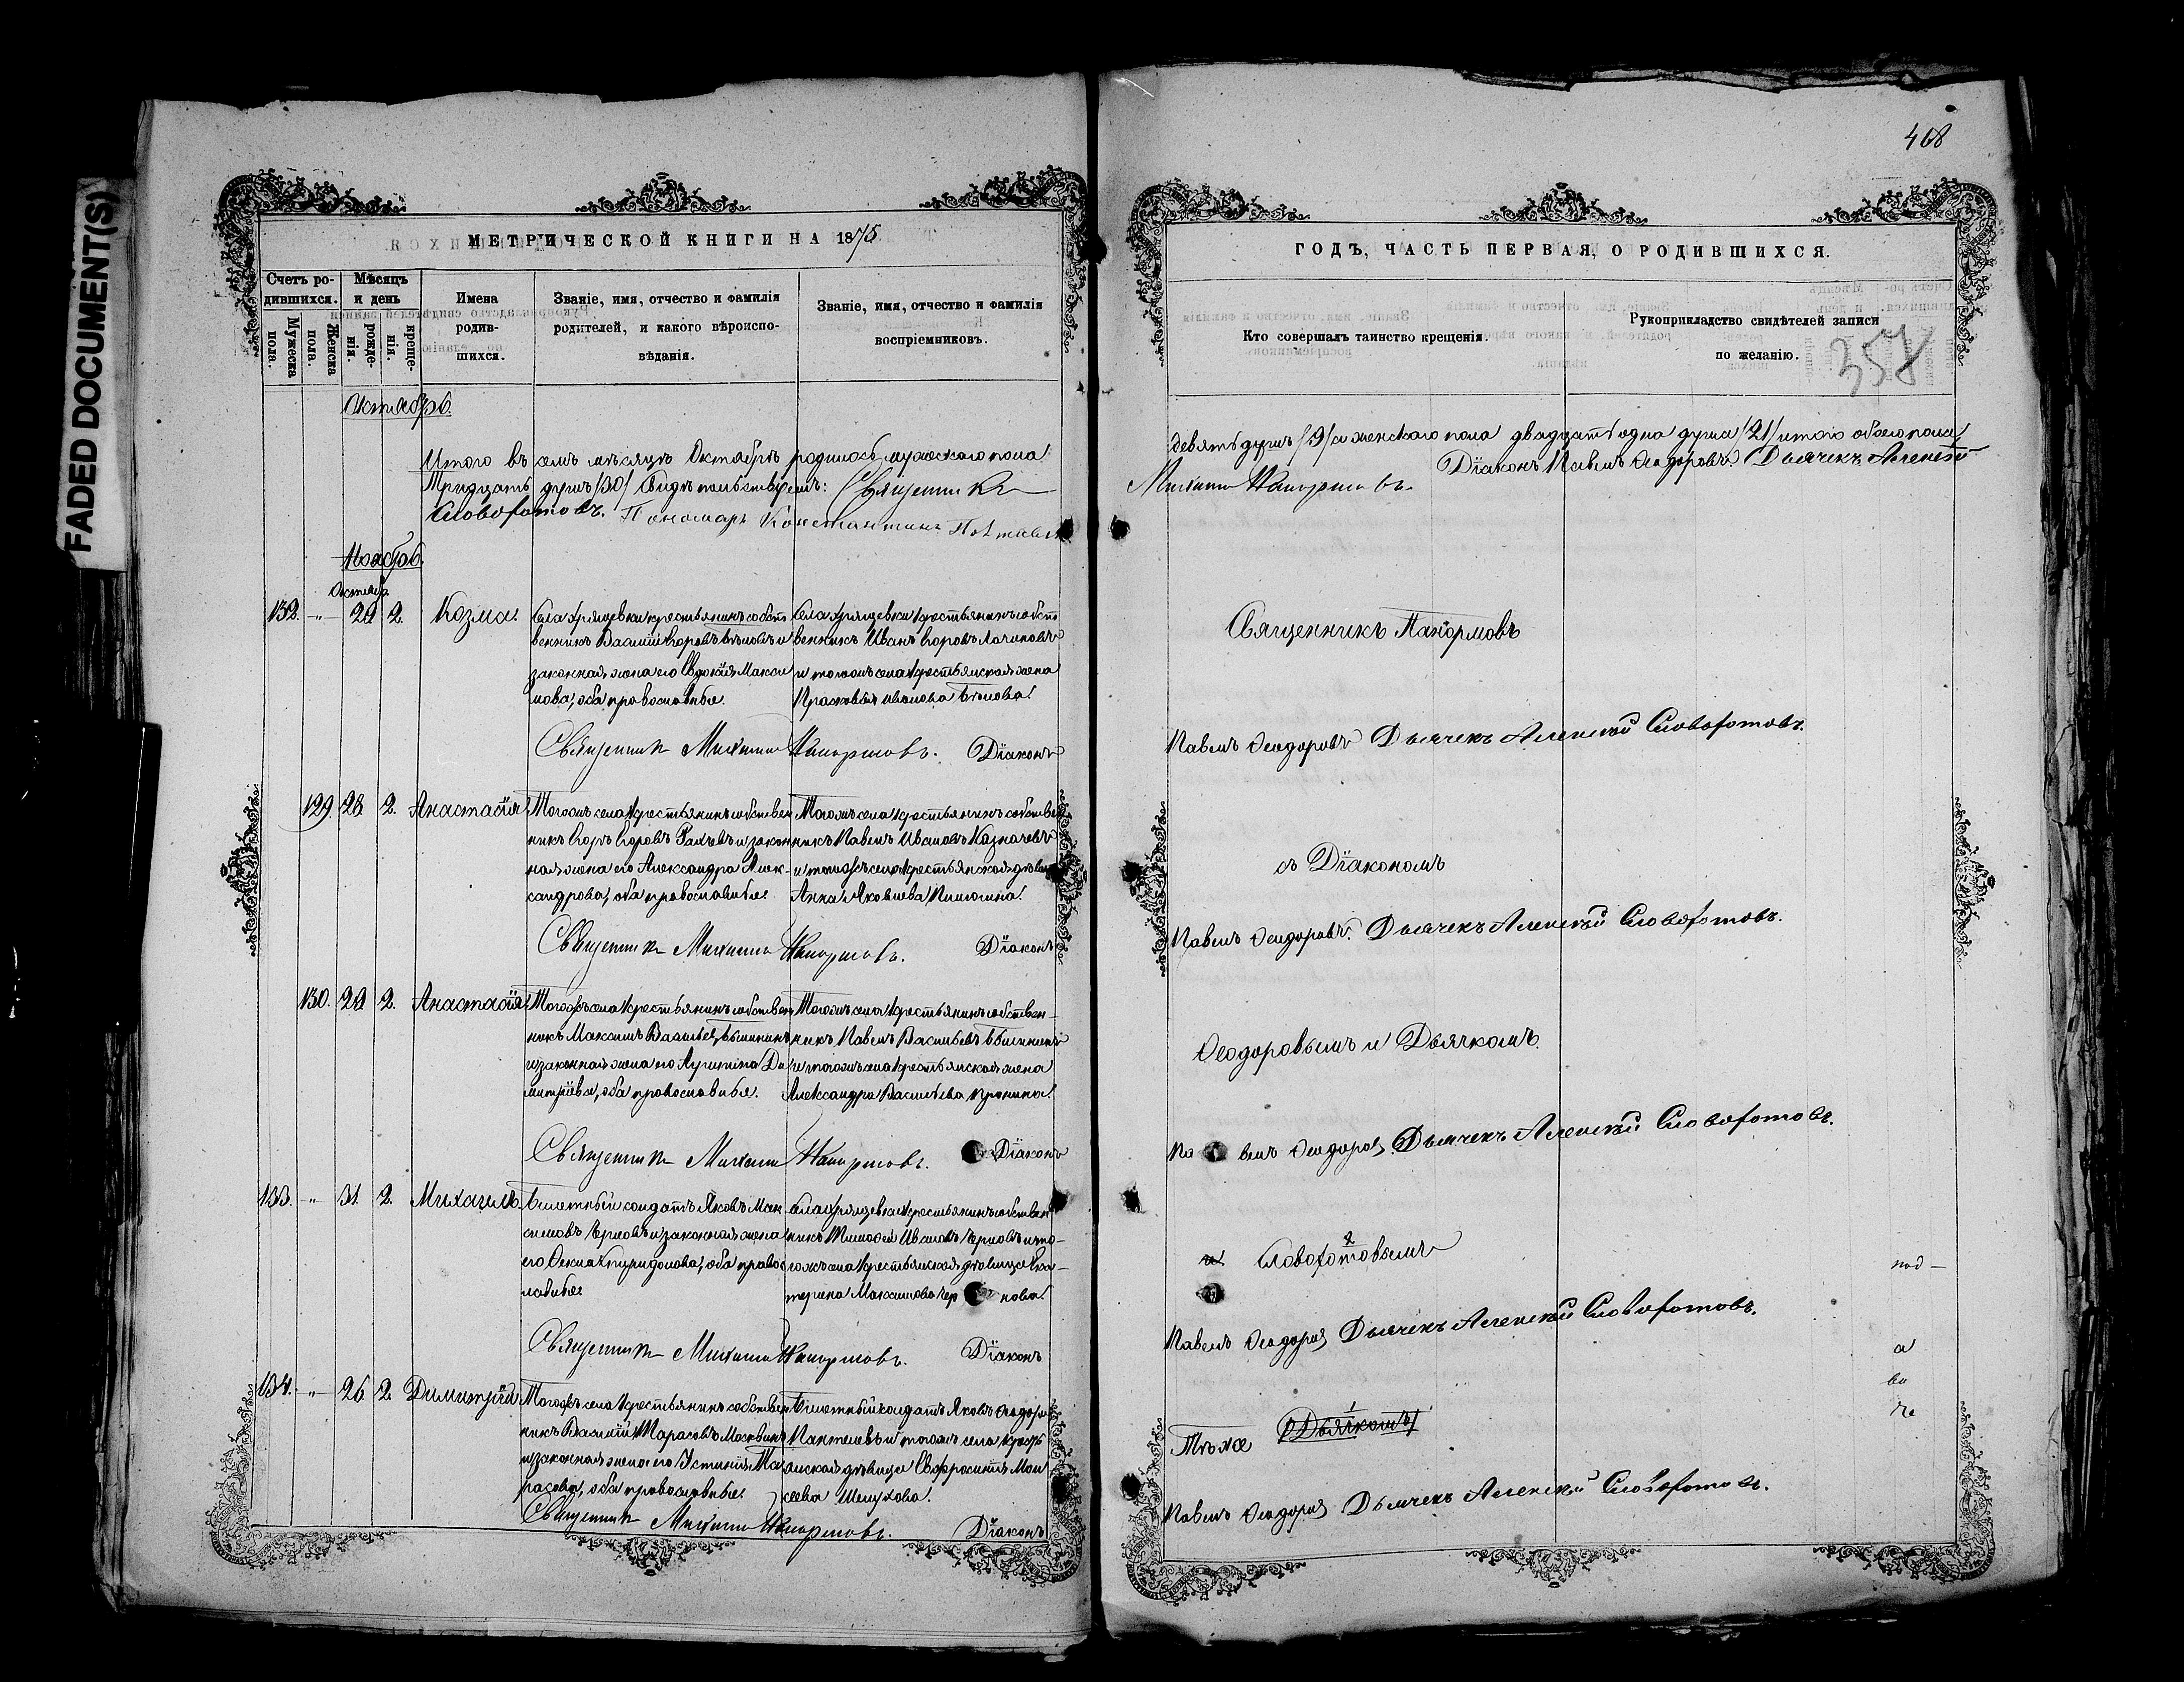 FADED DOCUMENT(S)
468
МЕТРИЧЕСКОЙ КНИГИ НА 1875
Счетъ ро-
дившихся.
Мужеска
пола.
Женска
пола.
Мѣсяцъ
и день
рожде-
нія.
креще-
нія.
Имена
родив-
шихся.
Званіе, имя, отчество и фамилія
родителей, и какого вѣроиспо-
вѣданія.
Званіе, имя, отчество и фамилія
воспріемниковъ.
Октябрь.
Итого въ семъ мѣсяцѣ Октябрѣ родилось мужескаго пола
Тридцать душъ /30/ Священникъ
Словохотовъ. Пономарь Константинъ
Ноябрь.
Октября
132. -"- 29 2. Козма.
Села Хрящевки крестьянинъ собст
венникъ Василій Егоровъ и
законная жена его Евдокія Макси
мова, оба православные.
Села Хрящевки крестьянинъ собст
венникъ Иванъ Егоровъ
и тогожъ села крестьянская жена
Прасковья Иванова
Священникъ Михаилъ Панормовъ. Діаконъ
129. 28 2. Анастасія
Тогожъ села крестьянинъ собствен
никъ Егоръ Егоровъ и закон
ная жена его Александра Алек-
сандрова, оба православные.
Тогожъ села крестьянинъ собствен
никъ Павелъ Ивановъ Казначеевъ
и тогожъ села крестьянская дѣвица
Анна Яковлева
Священникъ Михаилъ Панормовъ. Діаконъ
130. 29 2. Анастасія
Тогожъ села крестьянинъ собствен
никъ Максимъ Васильевъ
и законная жена его Ди
митріева, оба православные.
Тогожъ села крестьянинъ собствен-
никъ Павелъ Васильевъ
и тогожъ села крестьянская жена
Александра Васильева Пронина.
Священникъ Михаилъ Панормовъ. Діаконъ
133. " 31 2. Михаилъ.
Билетный солдатъ Яковъ Мак
симовъ Черновъ и законная жена
его Спиридонова, оба право
славные.
Села Хрящевки крестьянинъ собствен
никъ Тимофей Ивановъ Черновъ и то-
гожъ села крестьянская дѣвица Ека-
терина Максимова Чернова.
Священникъ Михаилъ Панормовъ. Діаконъ
134. " 26 2 Димитрій
Тогожъ села крестьянинъ собствен
никъ Василій Тарасовъ
и законная жена его Устинія Та
расова, оба православные.
Билетный солдатъ Яковъ Ѳеодоро
Пантелеевъ и тогожъ села кресть
янская дѣвица Евфросинія Мои
сеева
Священникъ Михаилъ Панормовъ. Діаконъ
ГОДЪ, ЧАСТЬ ПЕРВАЯ, О РОДИВШИХСЯ.
Кто совершалъ таинство крещенія.
Рукоприкладство свидѣтелей записи
по желанію.
357
девять душъ /9/ а женскаго пола двадцать одна душа /21/ итого обоего пола
Михаилъ Панормовъ. Діаконъ Павелъ Ѳеодоровъ. Дьячекъ Алексѣй
Священникъ Панормовъ
Павелъ Ѳеодоровъ Дьячекъ Алексѣй Словохотовъ.
съ Діакономъ
Павелъ Ѳеодоровъ. Дьячекъ Алексѣй Словохотовъ.
Ѳеодоровымъ и Дьячкомъ
Павелъ Ѳеодоровъ Дьячекъ Алексѣй Словохотовъ.
Словохотовымъ
под-
Павелъ Ѳеодоровъ Дьячекъ Алексѣй Словохотовъ.
а
во
че
Тѣ же
Дьячкомъ
Павелъ Ѳеодоровъ Дьячекъ Алексѣй Словохотовъ.